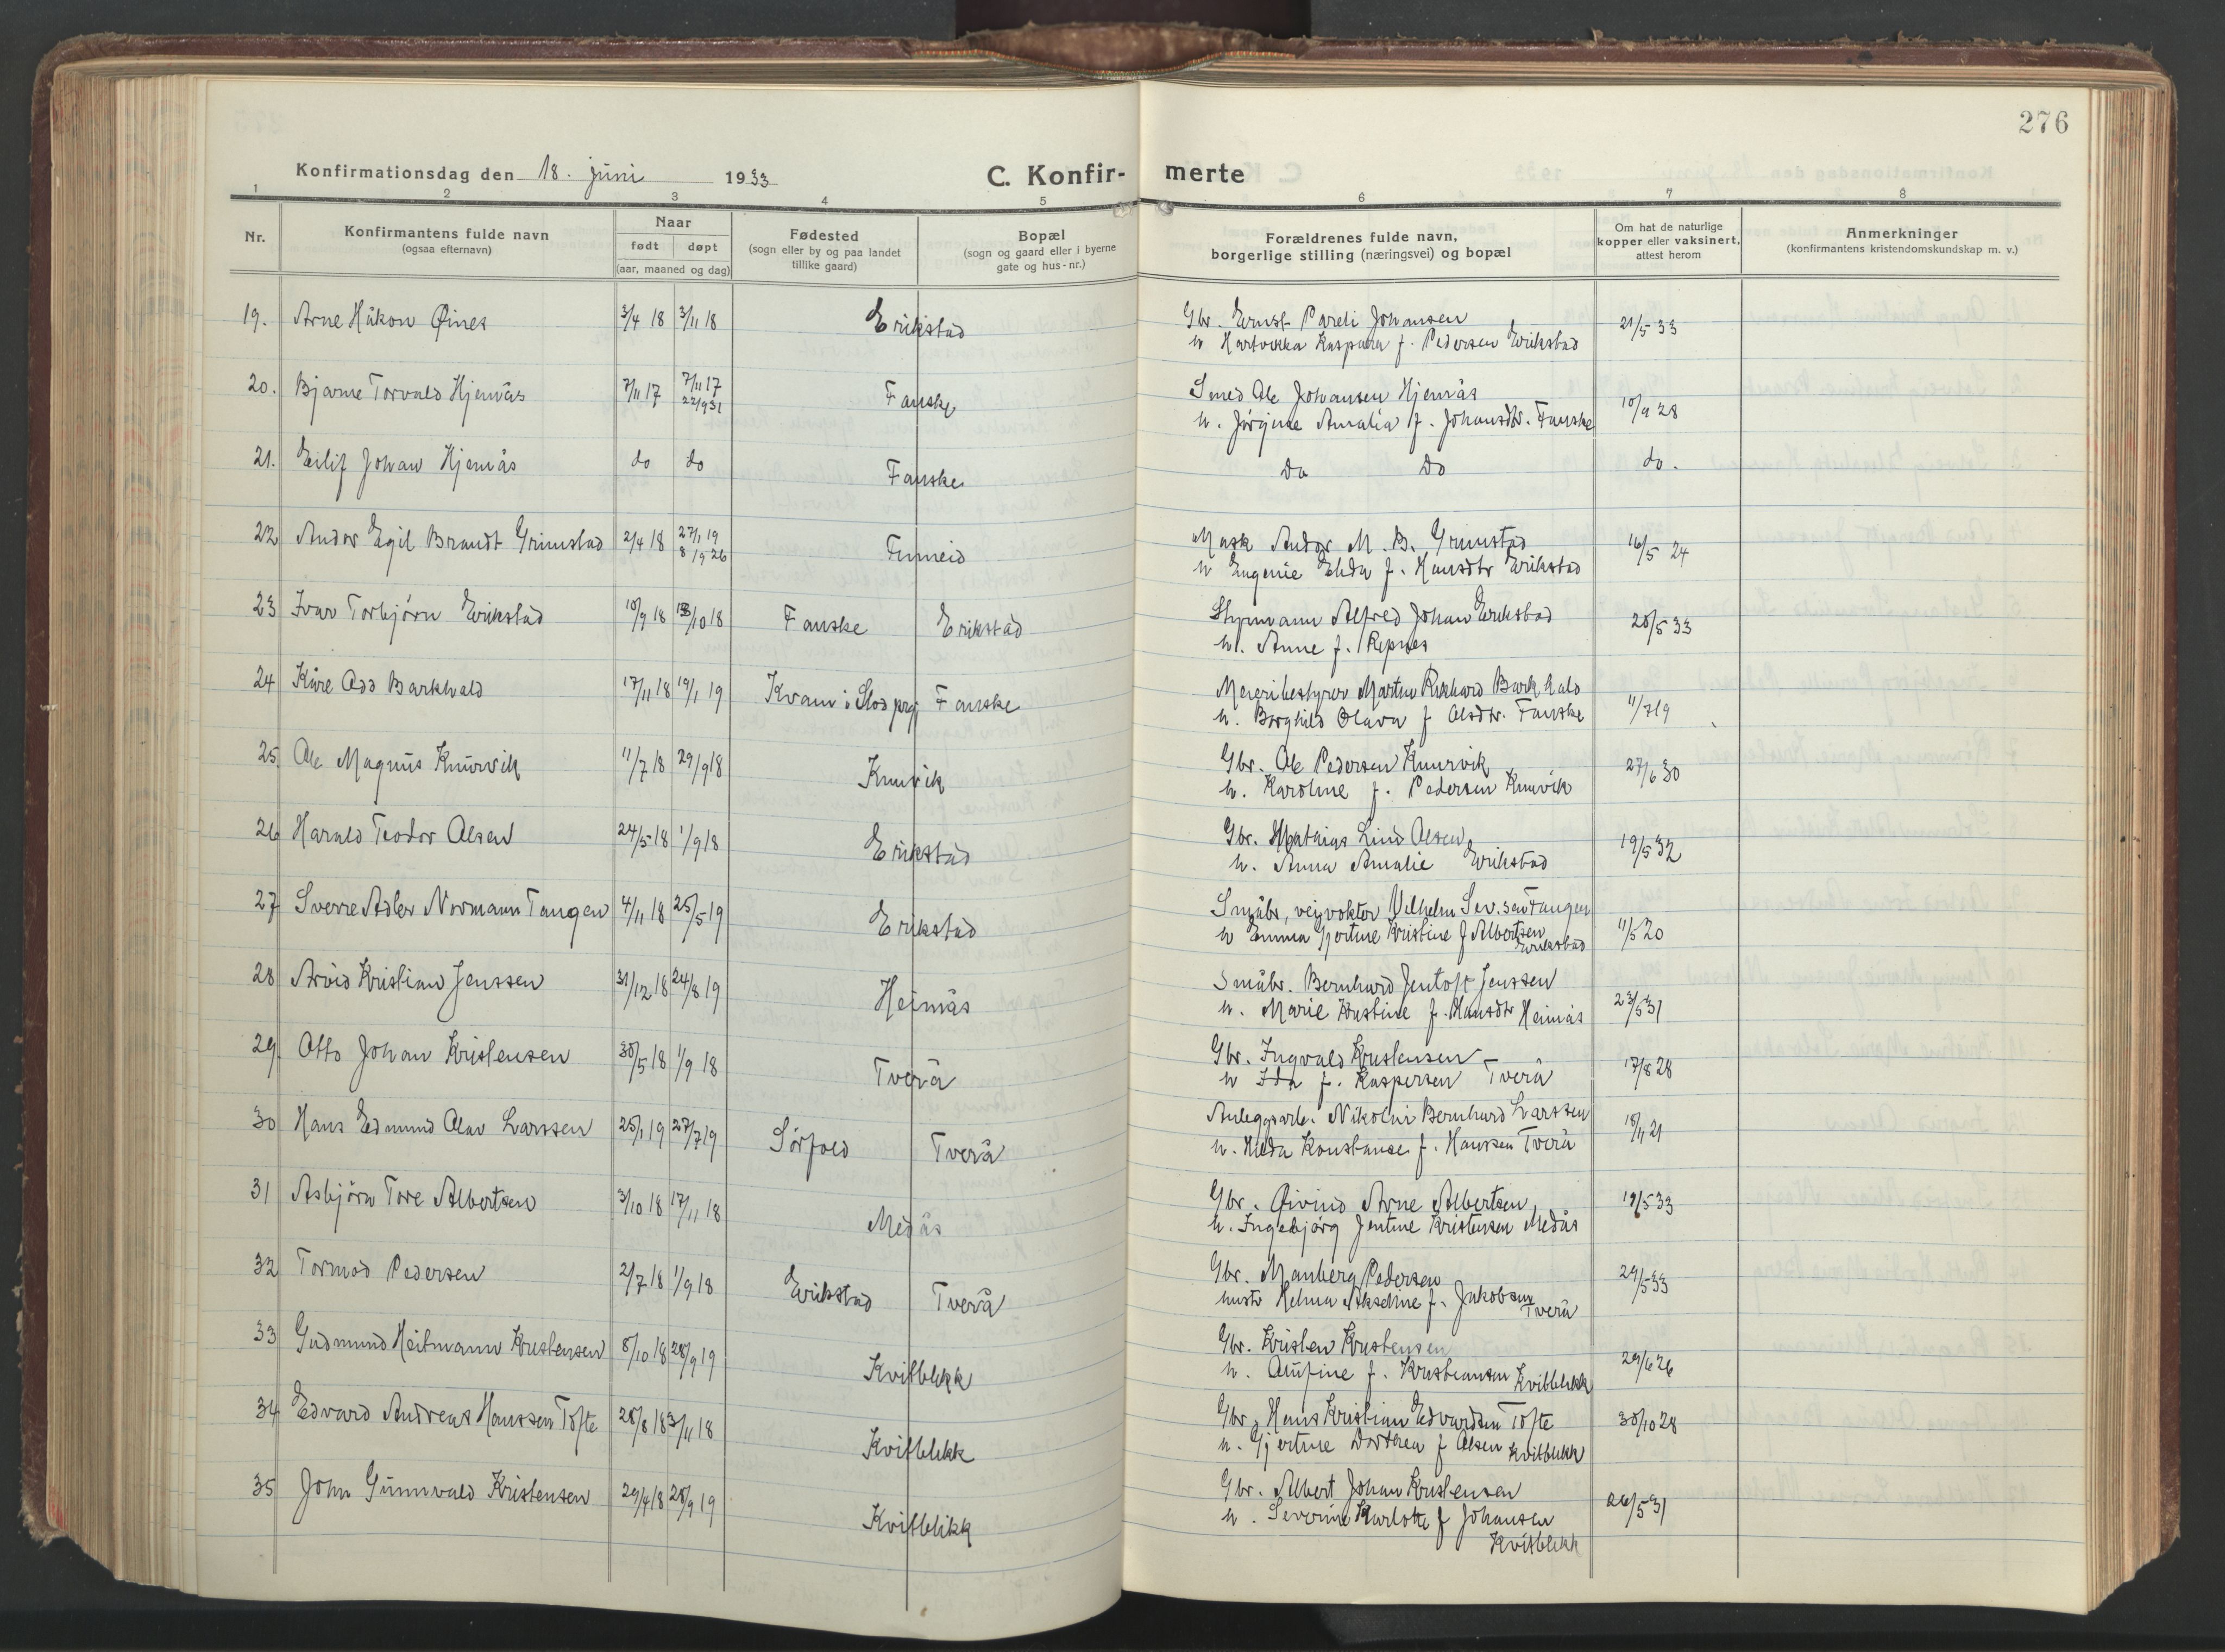 276
Konfirmationsdag den 18. juni 1933
C. Konfir- merte
1 2 3 4 5 6 7 8
Nr.
Konfirmantens fulde navn
(ogsaa efternavn)
Naar
født døpt
(aar, maaned og dag)
Fødested
(sogn eller by og paa landet
tillike gaard)
Bopæl
(sogn og gaard eller i byerne
gate og hus-nr.)
Forældrenes fulde navn,
borgerlige stilling (næringsvei) og bopæl
Om hat de naturlige
kopper eller vaksinert,
attest herom
Anmerkninger
(konfirmantens kristendomskundskap m. v.)
19. Arne Håkon Øines 3/4 18 3/11 18 Erikstad Gbr. Ernst Pareli Johansen 21/5 33
h Hartvikka Kaspara f. Pedersen Erikstad
20. Bjarne Torvald Hjemås 7/11 17 7/11 17 Fauske Smed Ole Johansen Hjemås 10/9 28
22/9 31 h. Jørgine Amalia f. Johansdtr. Fauske
21. Eilif Johan Hjemås do do Fauske do do do.
22 Andor Egil Brandt Grimstad 2/4 18 27/1 19 Finneid Mask Andor M. B. Grimstad 16/5 24
8/9 26 h Eugenie Elida f. Hansdtr Erikstad
23 Ivar Torbjörn Erikstad 10/9 18 13/10 18 Fauske Erikstad Styrmann Alfred Johan Erikstad 28/5 33
h. Anne f. Repnes
24 Kåre Odd Barkhald 17/11 18 19/1 19 Kvam i Stod prgj Fauske Meieribestyrer Martin Rikhard Barkhald 11/7 19
h. Borghild Olava f Olsdtr. Fauske
25. Ole Magnus Knurvik 11/7 18 29/9 18 Knurvik Gbr. Ole Pedersen Knurvik 27/6 30
h. Karoline f. Pedersen Knurvik
26 Harald Teodor Olsen 24/5 18 1/9 18 Erikstad Gbr. Mathias Lind Olsen 19/5 32
h. Anna Amalie Erikstad
27 Sverre Adler Normann Tangen 4/11 18 25/5 19 Erikstad Småbr, veivokter Vilhelm Sev.sen Tangen 11/5 20
h Emma Hjertine Kristine f Albertsen
Erikstad
28 Arvid Kristian Jenssen 31/12 18 24/8 19 Heimås Småbr. Bernhard Jentoft Jenssen 23/5 31
h. Marie Kristine f. Hansdtr Heimås
29. Otto Johan Kristensen 30/5 18 1/9 18 Tverå Gbr. Ingvald Kristensen 17/8 28
h Ida f. Kaspersen Tverå
30 Hans Edmund Olav Larssen 25/1 19 27/7 19 Sörfold Tverå Anleggsarb. Nikolai Bernhard Larssen 18/11 21
h. Hilda Konstanse f. Hanssen Tverå
31 Asbjörn Tore Albertsen 3/10 18 17/11 18 Medås Gbr. Øivind Arne Albertsen 19/5 33
h. Ingebjörg Jentine Kristensen Medås
32 Tormod Pedersen 2/7 18 1/9 18 Erikstad Tverå Gbr. Manberg Pedersen 29/5 33
hustr Helma Akseline f. Jakobsen
Tverå
33 Gudmund Heitmann Kristensen 8/10 18 28/9 19 Kvitblikk Gbr. Kristen Kristensen 29/6 26
h. Olufine f. Kristiansen Kvitblikk
34 Edvard Andreas Hanssen Töfte 28/8 18 3/11 18 Kvitblikk Gbr. Hans Kristian Edvardsen Töfte 30/10 28
h. Gjertine Dorthea f Olsen Kvitblikk
35 John Gunnvald Kristensen 29/4 18 28/9 19 Kvitblikk Gbr. Albert Johan Kristensen 26/5 31
h. Severine Karlotte f Johansen
Kvitblikk